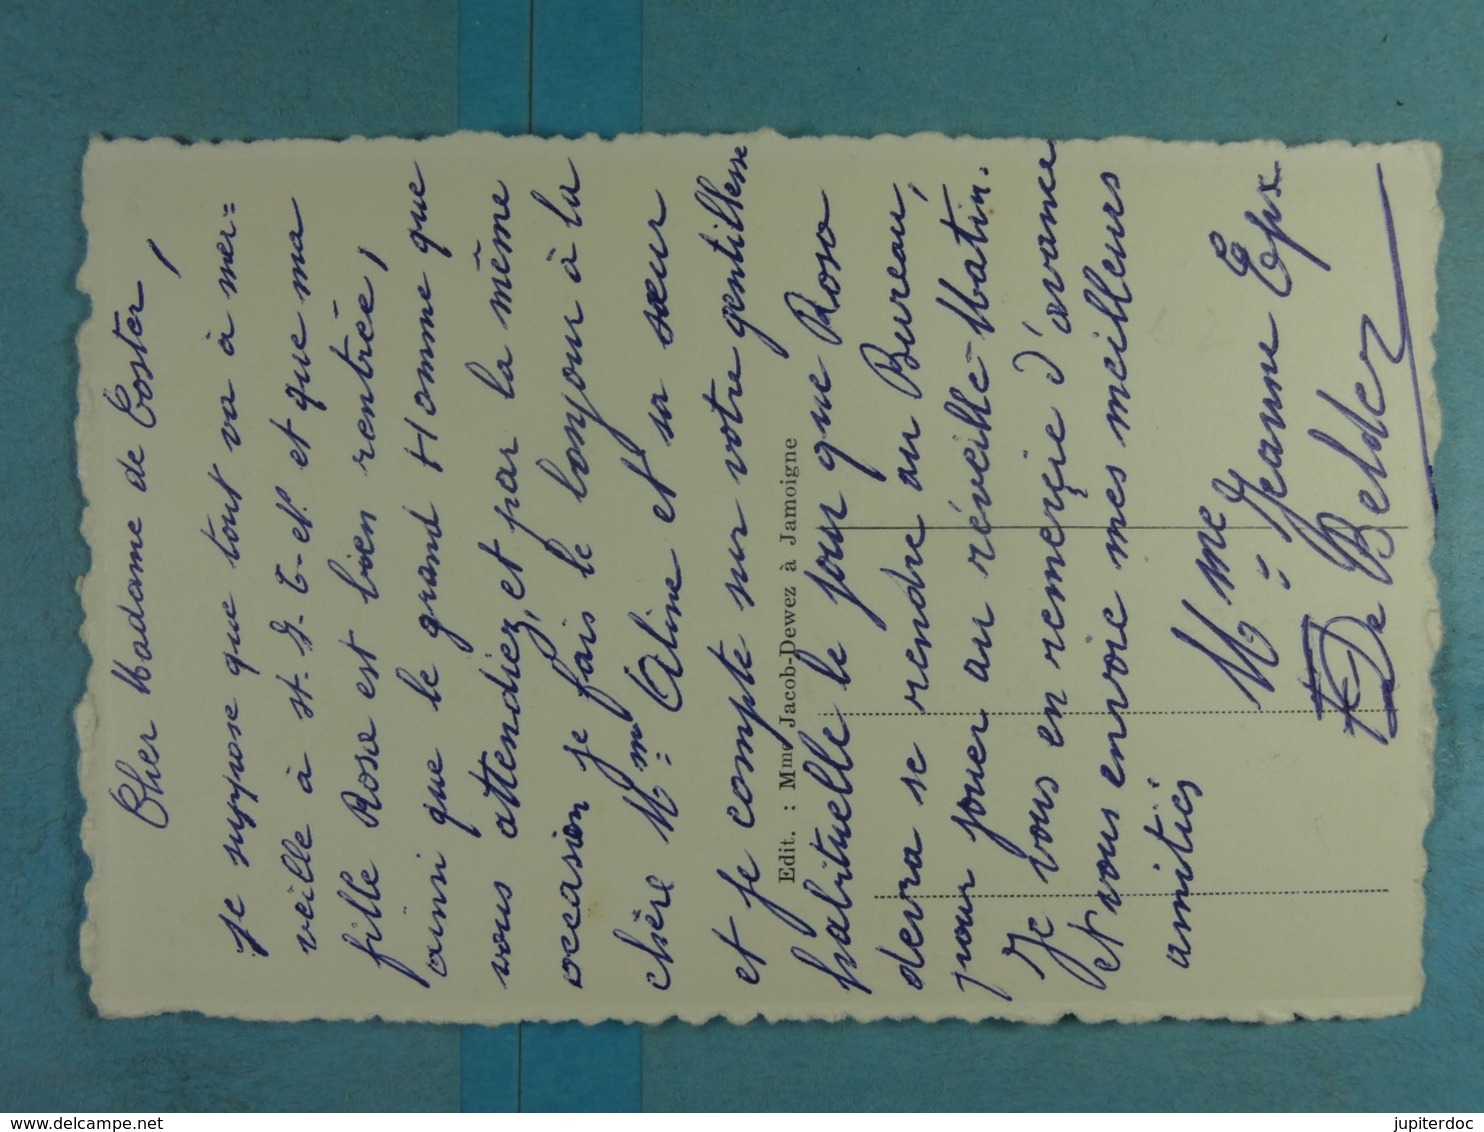 Cher Madame de Coster,
je suppose que tout va à mer=
veille à st. J. t-el. et que ma
fille Rosa est bien rentrée,
ainsi que le grand Homme que
vous attendiez, et par la même
occasion je fais le bonjour à la
chère Mme Aline et sa sœur
et je compte sur votre gentillesse
habituelle le jour que Rosa
devra se rendre au Bureau,
pour jouer au réveille-Matin.
Je vous en remerçie d'avance
et vous envoie mes meilleurs
amitiés
Mme Jeanne Epx
De Belder
Edit. : Mme Jacob-Dewez à Jamoigne
delcampe.net
jupiterdoc